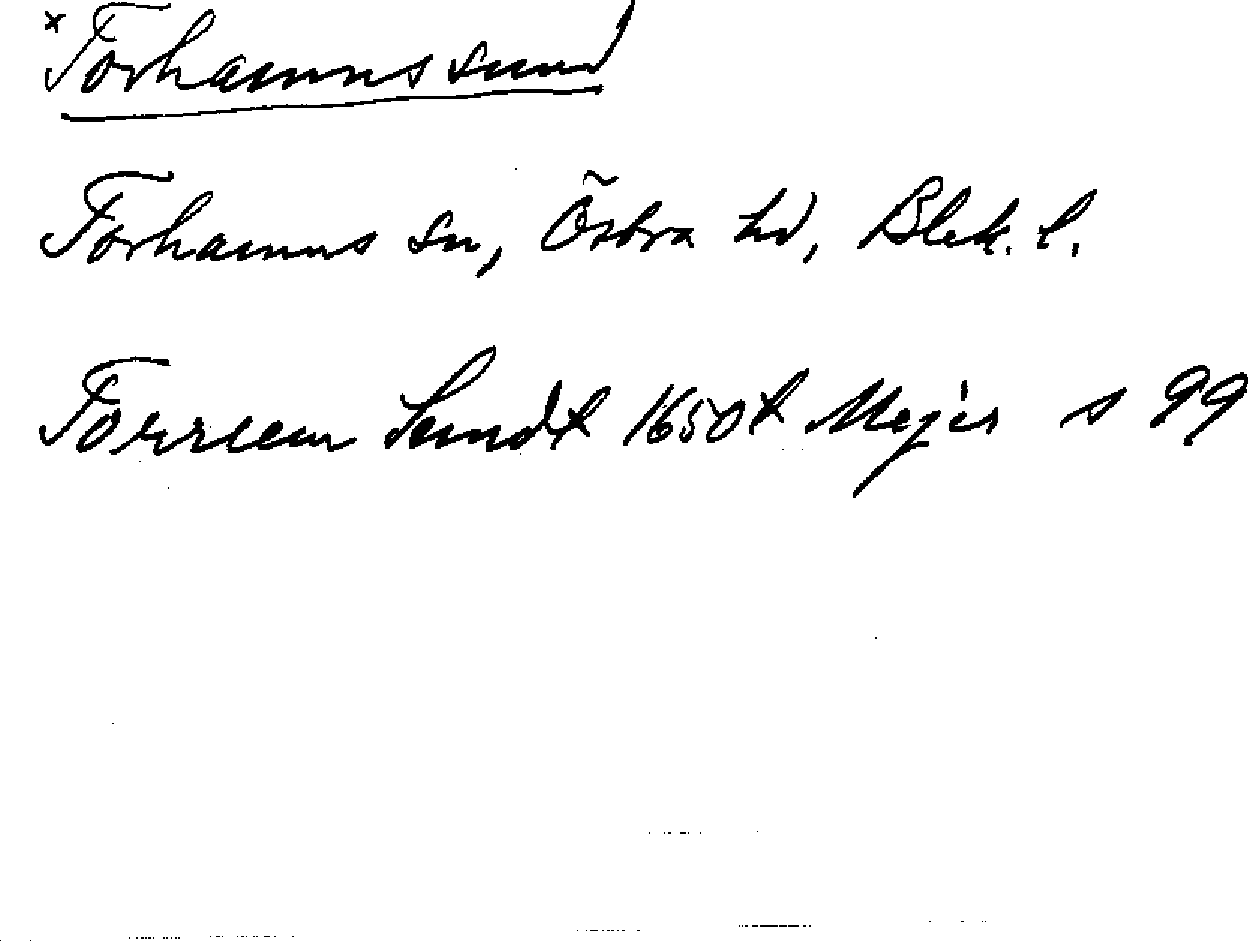 x Torhamnssund
Torhamns sn, Östra hd, Blek. l.
Sundt 1650t Mejer s 99